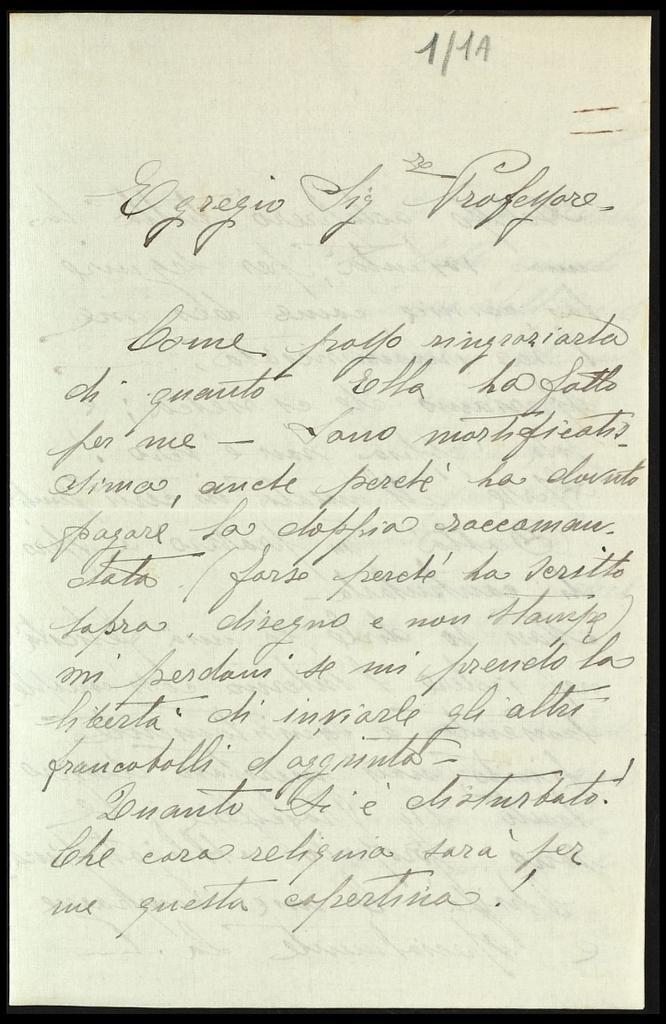 1/1A
Egregio Sig re Professore.
Come posso ringraziarla
di quanto Ella ha fatto
per me — Sono mortificatis-
sima, anche perché ha dovuto
pagare la doppia raccoman-
data (forse perché ha scritto
sopra, disegno e non stampe)
mi perdoni se mi prendo la
libertà di inviarle gli altri
francobolli d'aggiunta —
Quanto si è disturbato!
Che cara reliquia sarà per
me questa copertina!